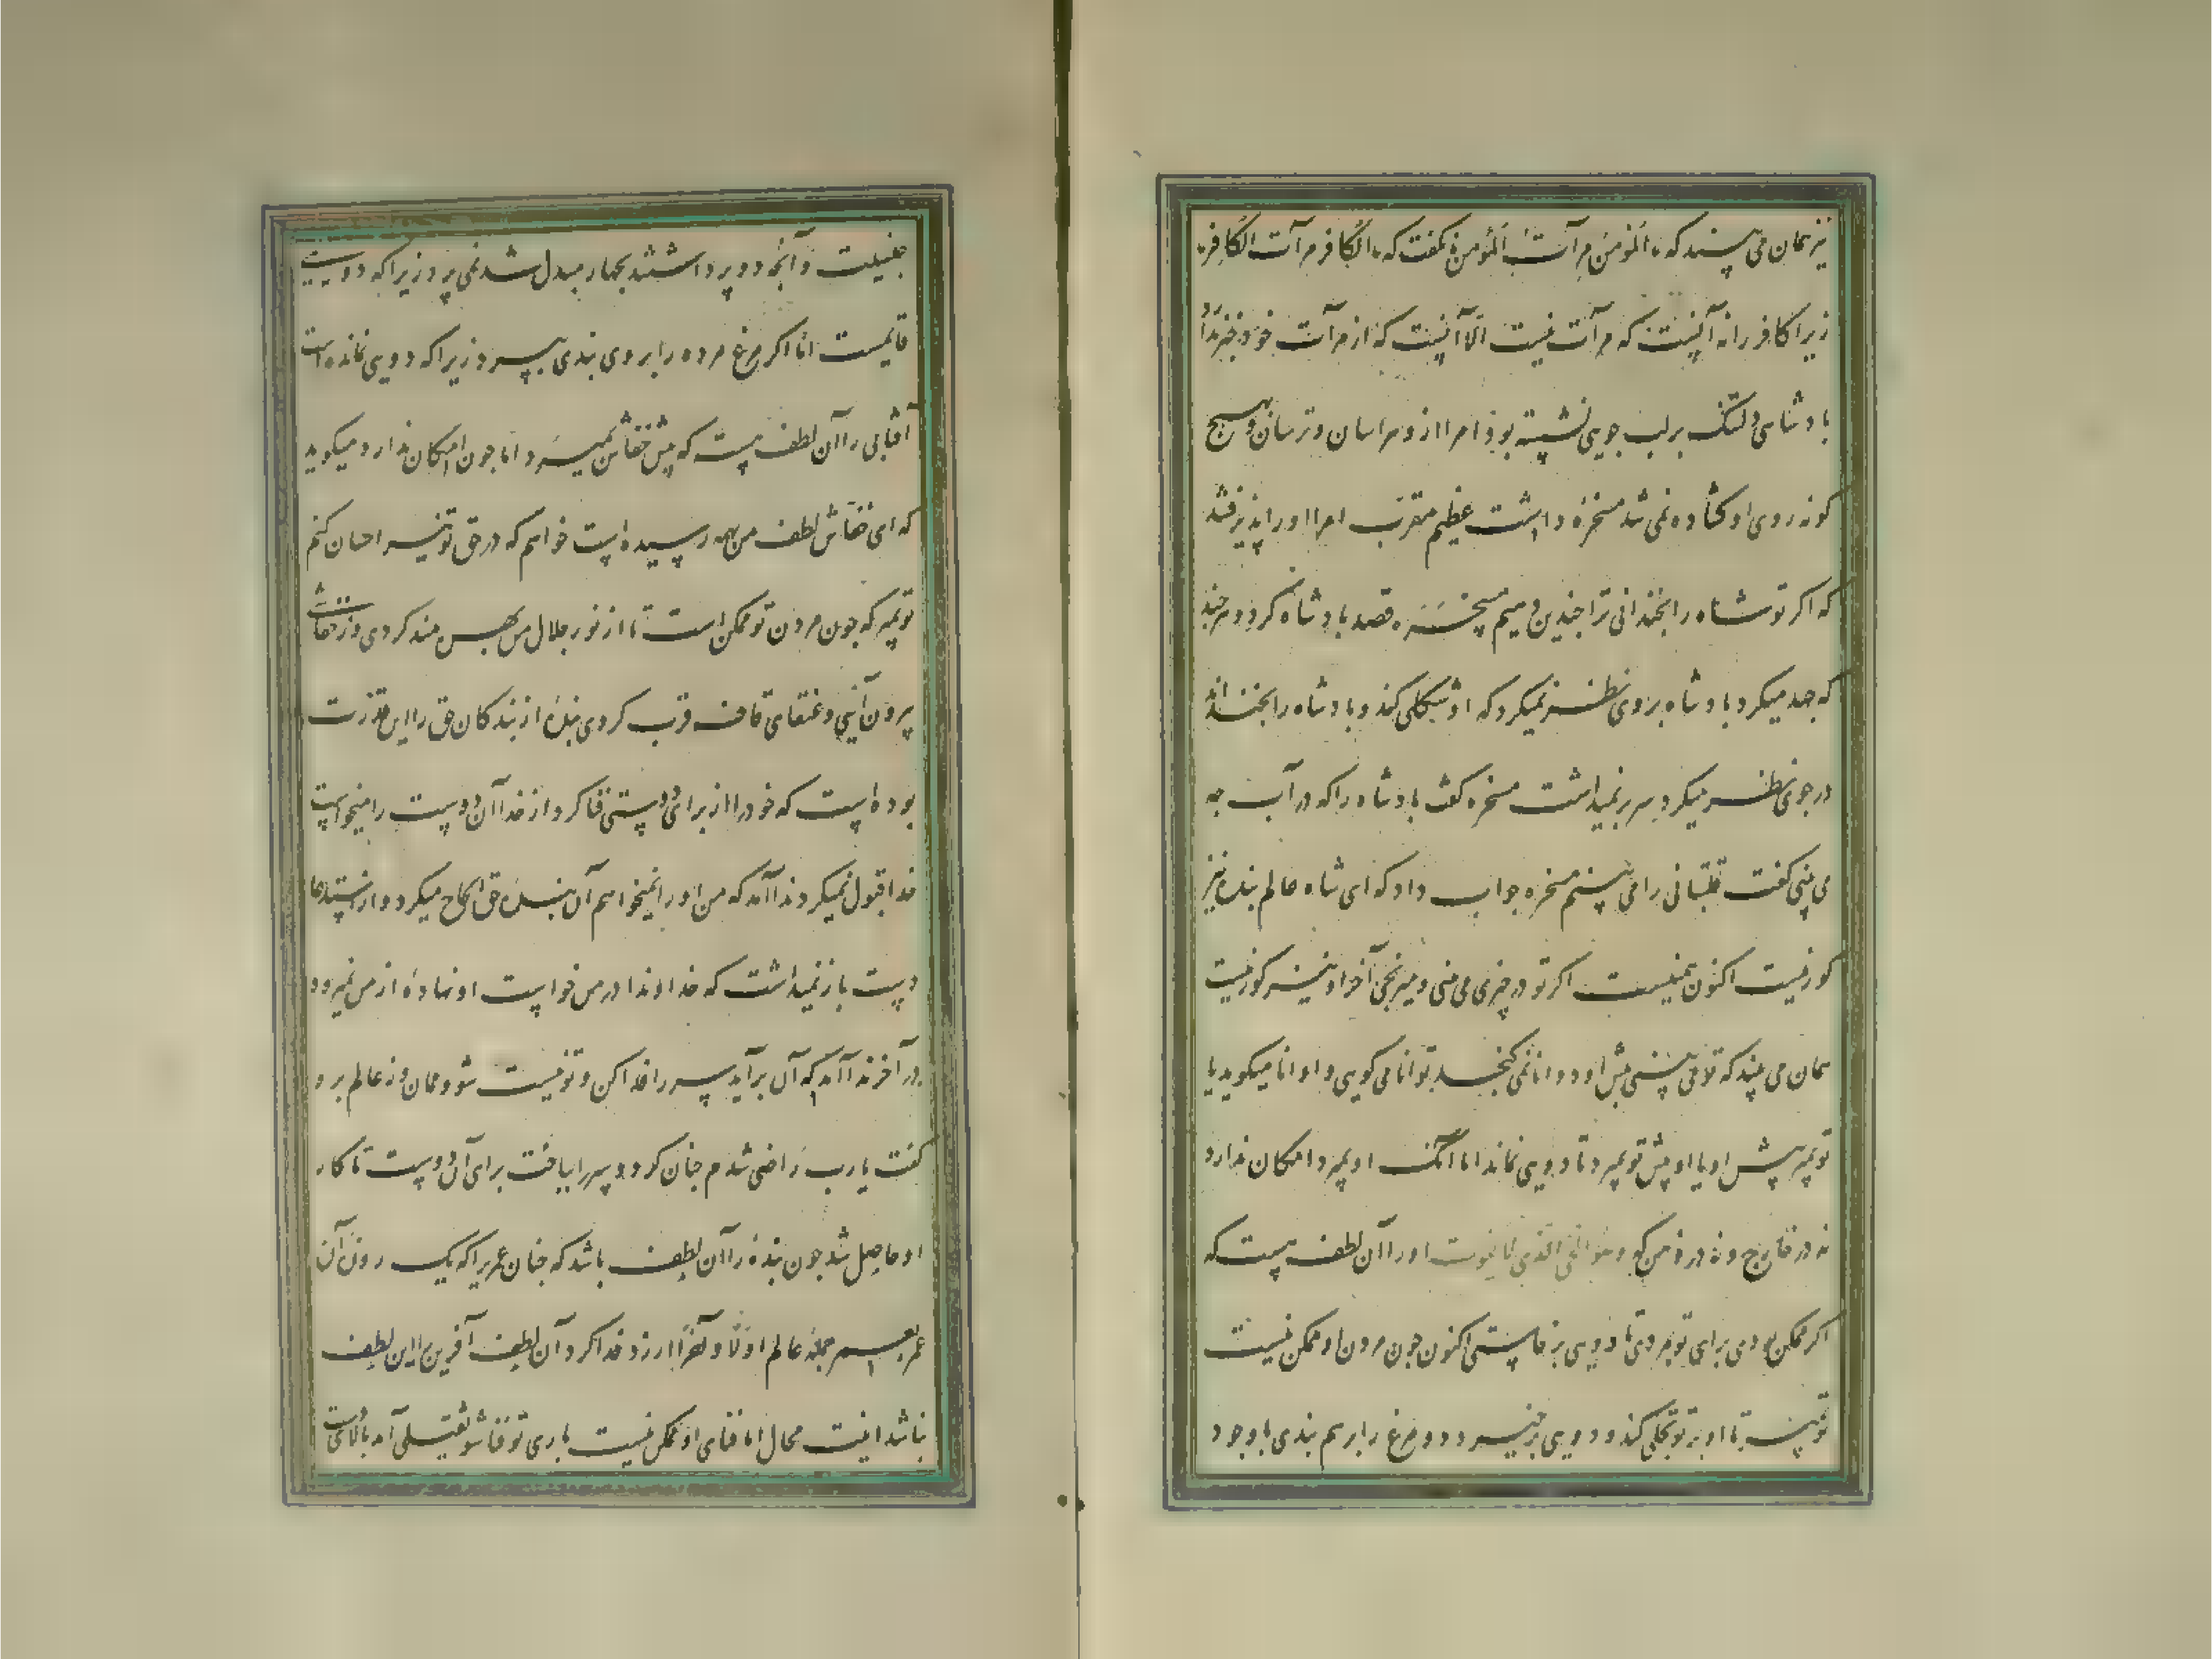 نیز همان می بیند که المؤمن مرآت المؤمن نکفت که الکافر مرآت الکافر
زیرا کافر را نه آنیست که مرآت نیست الّا آنیست که از مرآت خود خبر ندارد
پادشاهی دلتنک بر لب جویی نشسته بود امرا ازو هراسان و ترسان و بهیچ
کونه روی او کشاده نمی شد مسخرهٔ داشت عظیم مقرب امرا او را پذیرفتند
که اکر تو شاه را بخندانی ترا چندین دهیم مسخره قصد پادشاه کرد و هرچند
که جهد میکرد پادشاه بروی نظر نمیکرد که او شکلی کند و پادشاه را بخنداند
در جوی نظر میکرد و سر برنمیداشت مسخره کفت پادشاه را که در آب چه
می بینی کفت قلتبانی را می بینم مسخره جواب داد که ای شاه عالم بنده نیز
کور نیست اکنون همچنینست اکر تو درو چیزی می بینی و میرنجی آخر او نیز کور نیست
همان می بیند که تو می بینی پیش او دو انا نمی کنجد تو انا می کویی و او انا میکوید یا
تو بمیر پیش او یا او پیش تو بمیرد تا دویی نماند اما آنک او بمیرد امکان ندارد
نه در خارج و نه در ذهن که و هو الحی الذی لا یموت او را آن لطف هست که
اکر ممکن بودی برای تو بمردی تا دویی برخاستی اکنون چون مردن او ممکن نیست
تو بمیر تا او بر تو تجلی کند و دویی برخیزد دو مرغ را بر هم بندی با وجود
جنسیت و آنچ دو پر داشتند بچهار مبدل شد نمی پرد زیرا که دویی
قایمست امّا اکر مرغ مرده را برو بندی بپرد زیرا که دویی نمانده است
آفتابی را آن لطف هست که پیش خفاش بمیرد امّا چون امکان ندارد میکوید
که ای خفاش لطف من بهمه رسیده است خواهم که در حق تو نیز احسان کنم
تو بمیر که چون مردن تو ممکن است تا از نور جلال من بهره مند کردی و از خفاشی
بیرون آیی و عنقای قاف قرب کردی بندهٔ از بندکان حق را این قدرت
بوده است که خود را از برای دوستی فنا کرد از خدا آن دوست را میخواست
خدا قبول نمیکرد ندا آمد که من او را نمیخواهم آن بندهٔ حق الحاح میکرد و از استدعا
دست باز نمیداشت که خداوندا در من خواست او نهادهٔ از من نمیرود
در آخر ندا آمد که آن برآید سر را فدا کن و تو نیست شو و ممان و ز عالم برو
کفت یا رب راضی شدم چنان کرد و سر را بباخت برای آن دوست تا کار
او حاصل شد چون بندهٔ را آن لطف باشد که چنان عمریرا که یک روزهٔ آن
عمر بعمر جملهٔ عالم اولا و آخرا ارزد فدا کرد آن لطف آفرین را این لطف
نباشد اینت محال اما فنای او ممکن نیست باری تو فنا شو ثقیلی آمد بالای دست